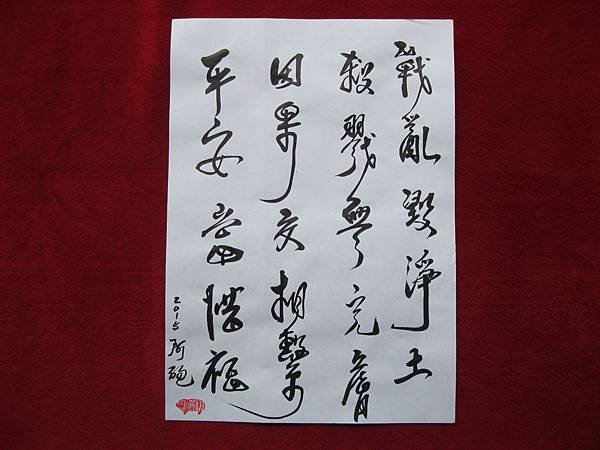 戰亂毀淨土
殺戮無完膚
因果交相繫
平安當惜福
2015 阿砲